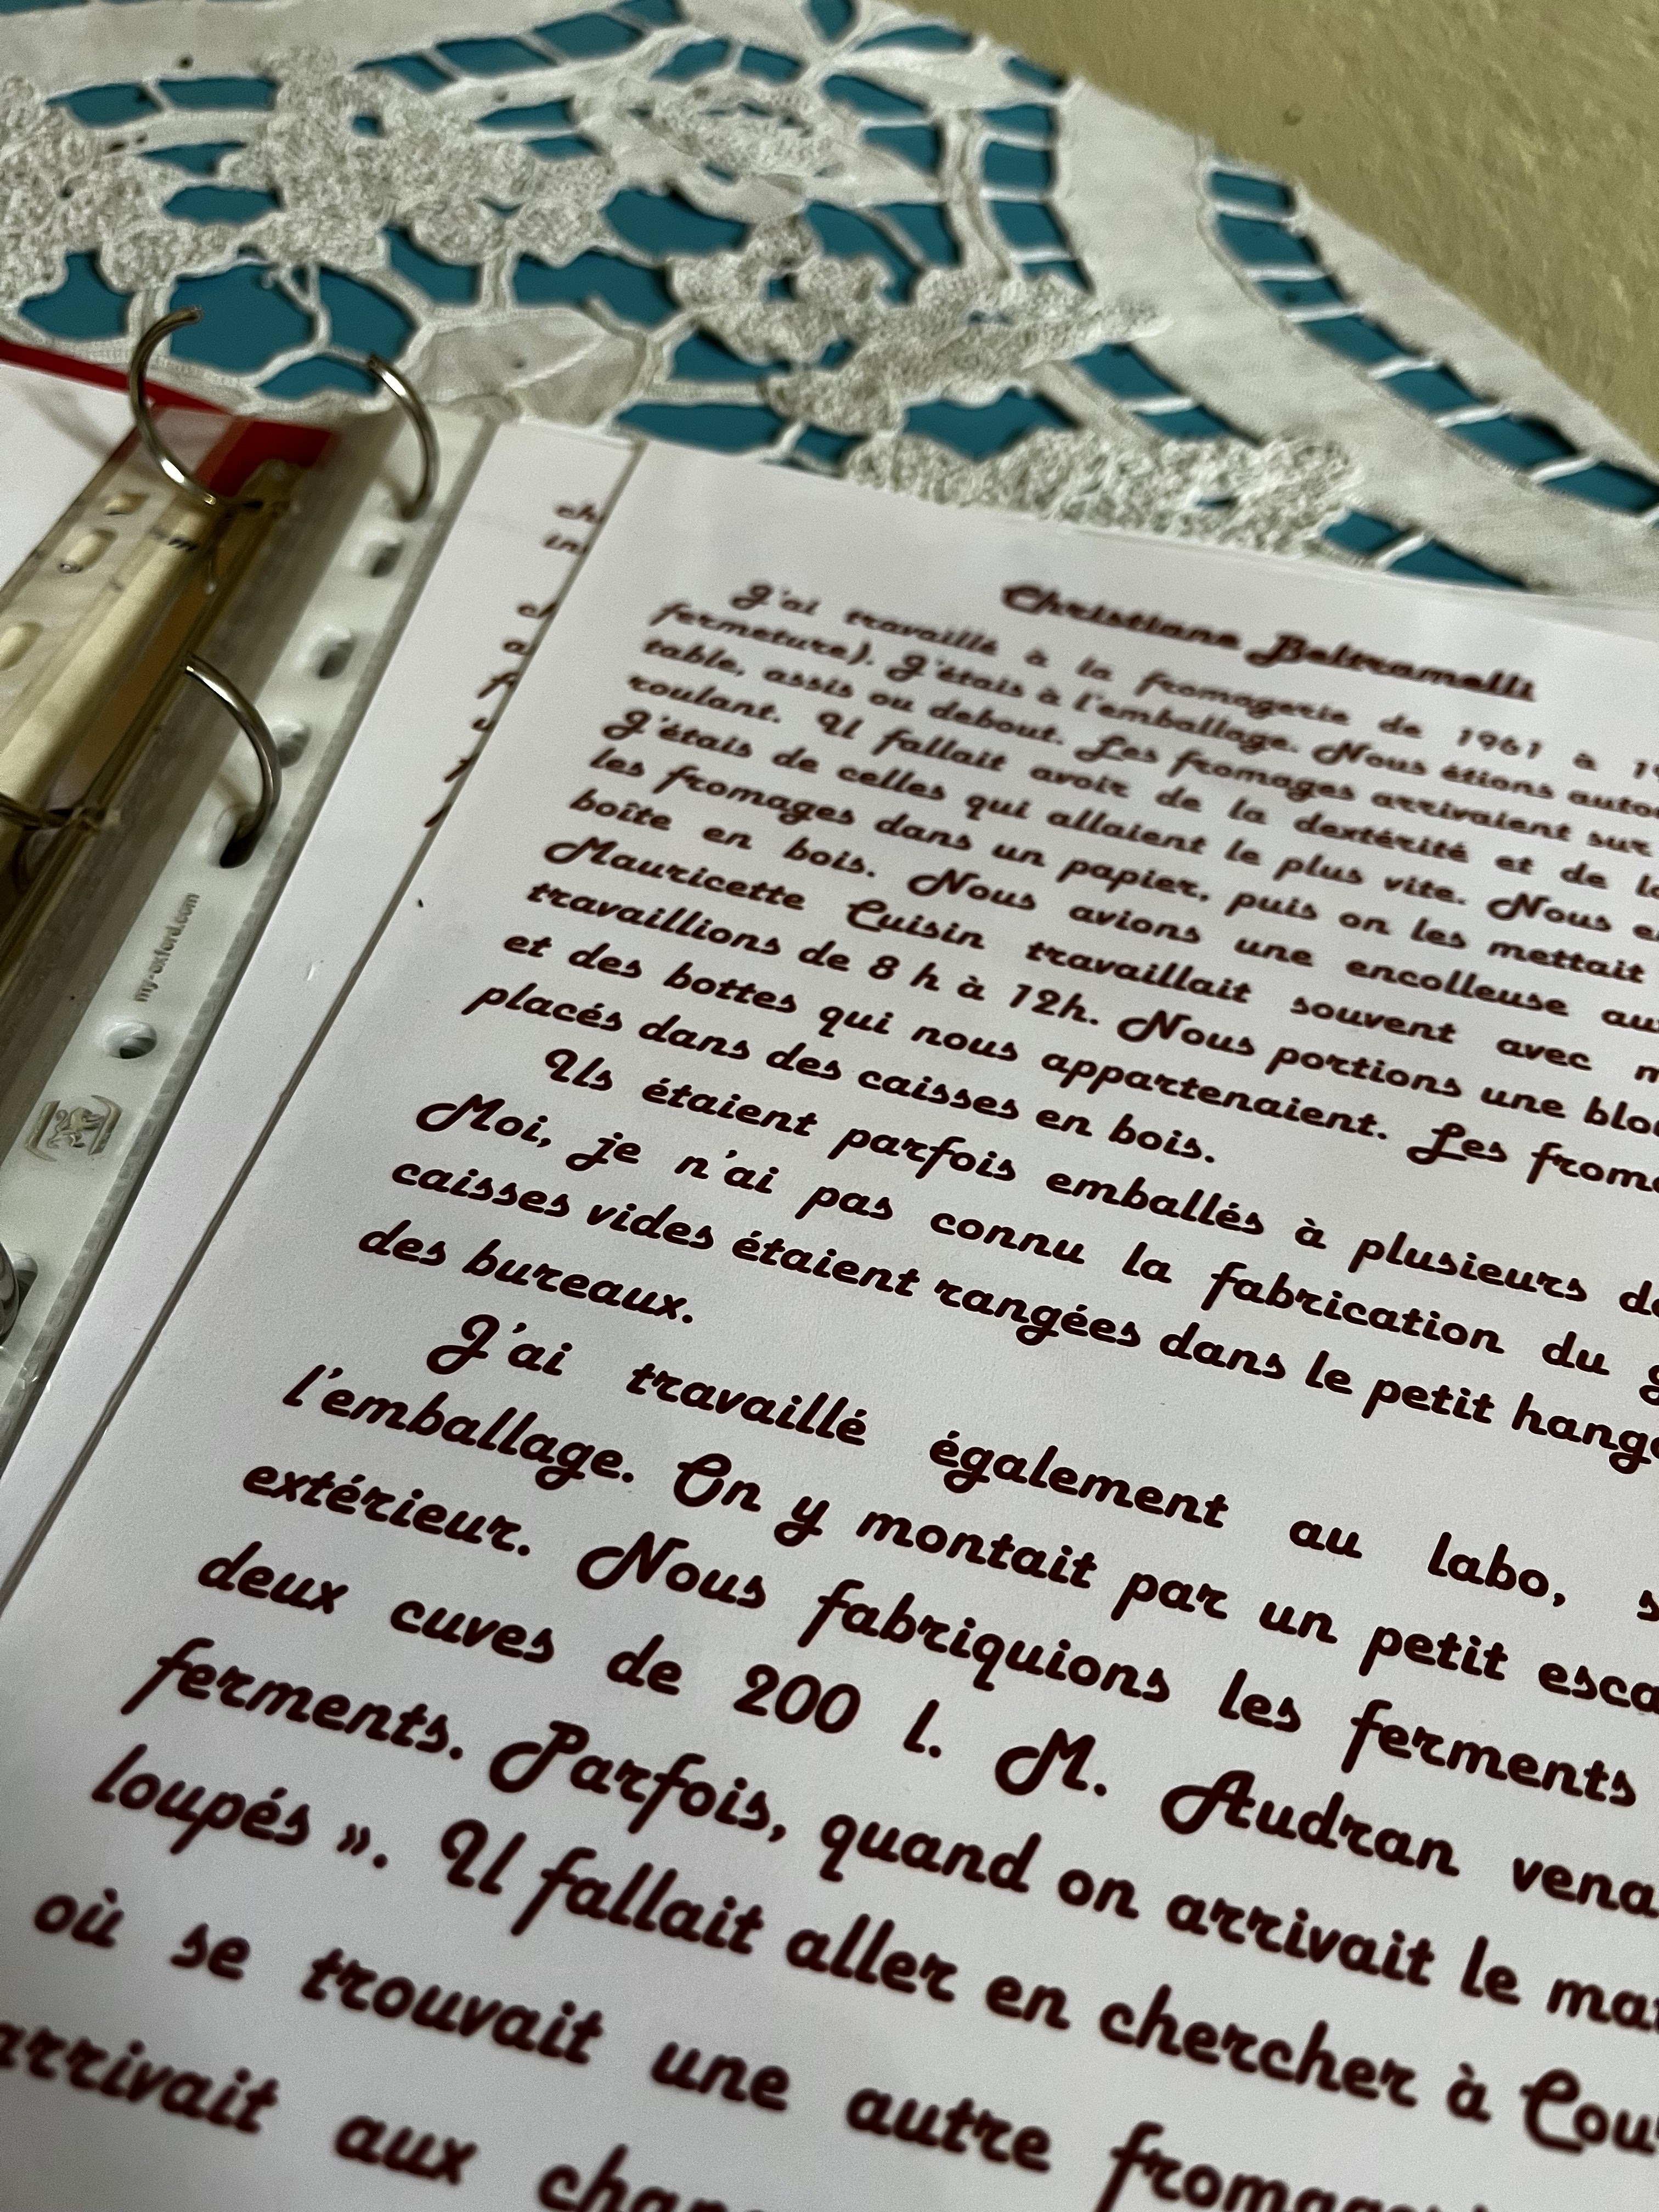 Christiane Beltramelli
J'ai travaillé à la fromagerie de 1961 à
fermeture). J'étais à l'emballage. Nous étions
table, assis ou debout. Les fromages arrivaient sur
roulant. Il fallait avoir de la dextérité et de
J'étais de celles qui allaient le plus vite. Nous
les fromages dans un papier, puis on les mettait
boîte en bois. Nous avions une encolleuse
Mauricette Cuisin travaillait souvent avec
travaillions de 8 h à 12h. Nous portions une
et des bottes qui nous appartenaient. Les
placés dans des caisses en bois.
Ils étaient parfois emballés à plusieurs
Moi, je n'ai pas connu la fabrication du
caisses vides étaient rangées dans le petit
des bureaux.
J'ai travaillé également au labo,
l'emballage. On y montait par un petit
extérieur. Nous fabriquions les ferments
deux cuves de 200 l. M. Audran
ferments. Parfois, quand on arrivait le
loupés ». Il fallait aller en chercher à
où se trouvait une autre
arrivait aux
my-oxford.com